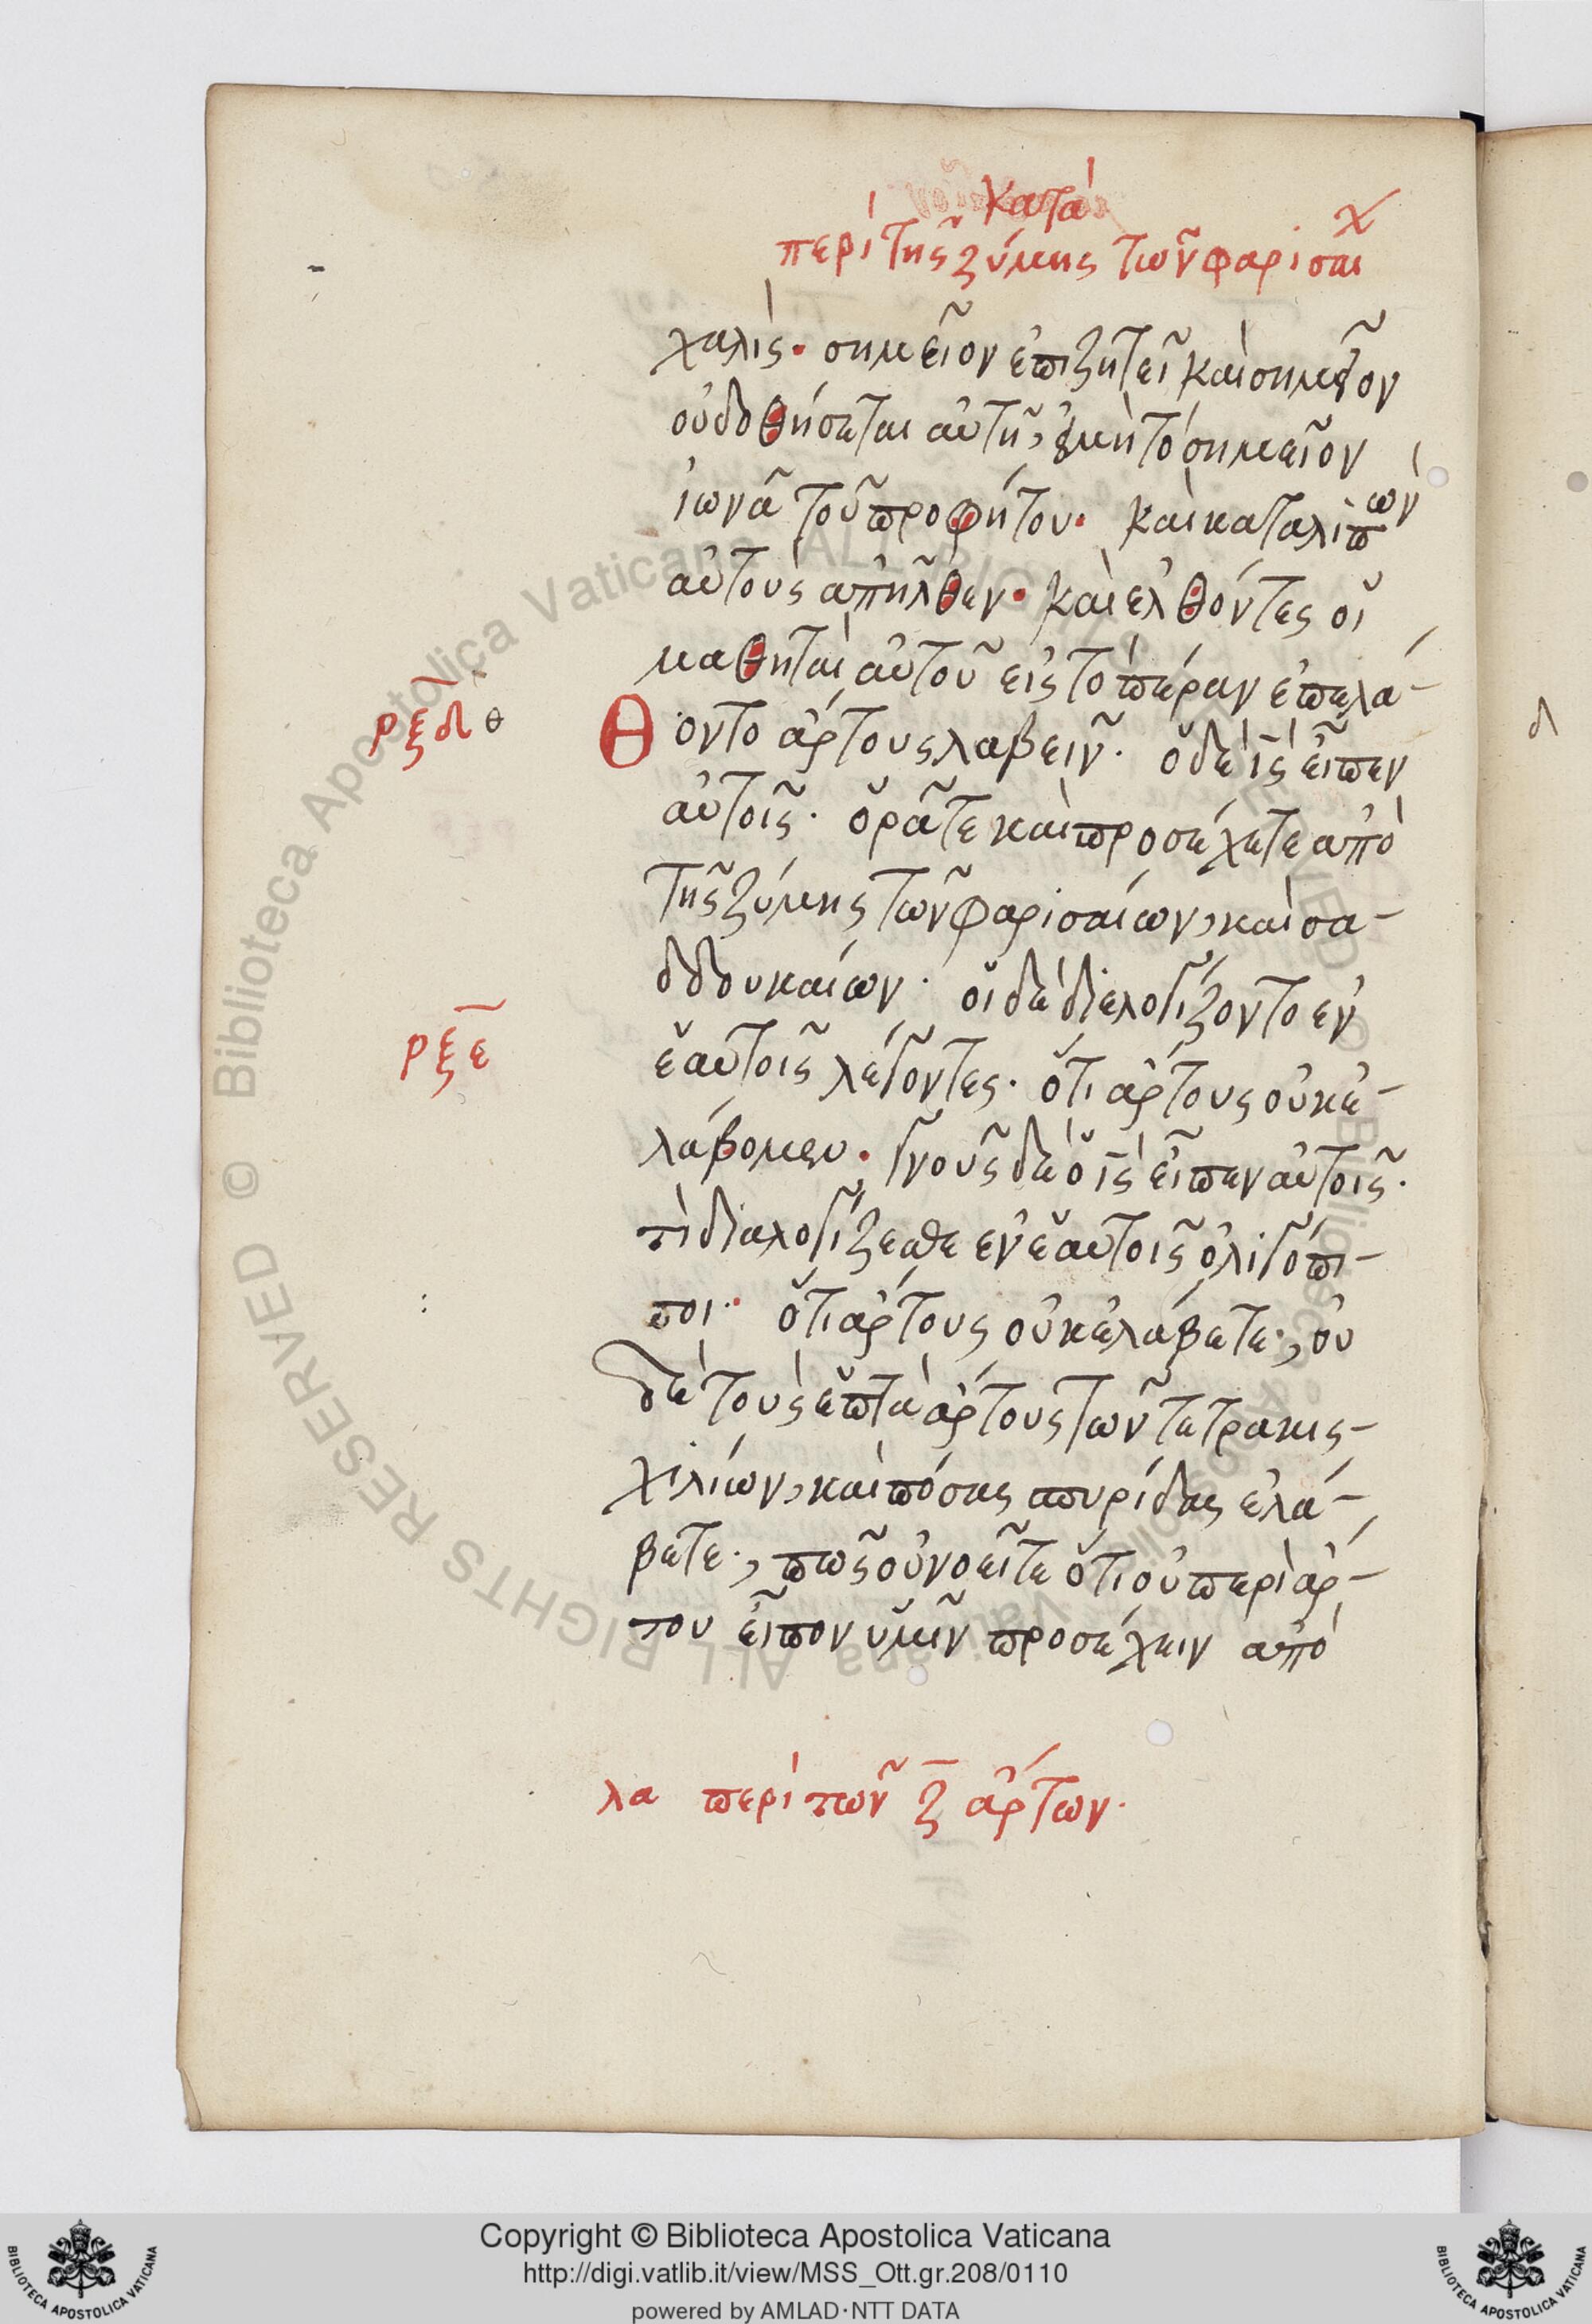 κατὰ
περὶ τῆς ζύμης τῶν φαρισαι
χαλὶς· σημεῖον ἐπιζητεῖ καὶ σημεῖον
οὐ δοθήσεται αὐτῆ, εἰ μὴ τὸ σημεῖον
ἰωνᾶ τοῦ προφήτου· καὶ καταλιπὼν
αὐτοὺς ἀπῆλθεν· καὶ ἐλθόντες οἱ
μαθηταὶ αὐτοῦ εἰς τὸ πέραν ἐπελά-
ρξδ θ Θοντο ἄρτους λαβεῖν· ὁ δὲ ις εἶπεν
αὐτοῖς· ὁρᾶτε καὶ προσέχετε ἀπὸ
τῆς ζύμης τῶν φαρισαίων, καὶ σα-
δδουκαίων· οἱ δὲ διελογίζοντο ἐν
ρξε ἑαυτοῖς λέγοντες· ὅτι ἄρτους οὐκ ἐ-
λάβομεν· γνοῦς δὲ ὁ ις εἶπεν αὐτοῖς·
τὶ διαλογίζεσθε ἐν ἑαυτοῖς ὀλιγόπι-
ποι· ὅτι ἄρτους οὐκ ἐλάβετε·, οὐ
δὲ τοὺς ἑπτὰ ἄρτους τῶν τετρακις-
χιλίων, καὶ πόσας σπυρίδας ἐλά-
βετε·, πῶς οὐ νοεῖτε ὅτι οὐ περὶ ἄρ-
του εἶπον ὑμῖν προσέχειν ἀπὸ
λα περὶ τῶν ζ ἄρτων·
δ
Copyright © Biblioteca Apostolica Vaticana
http://digi.vatlib.it/view/MSS_Ott.gr.208/0110
powered by AMLAD·NTT DATA